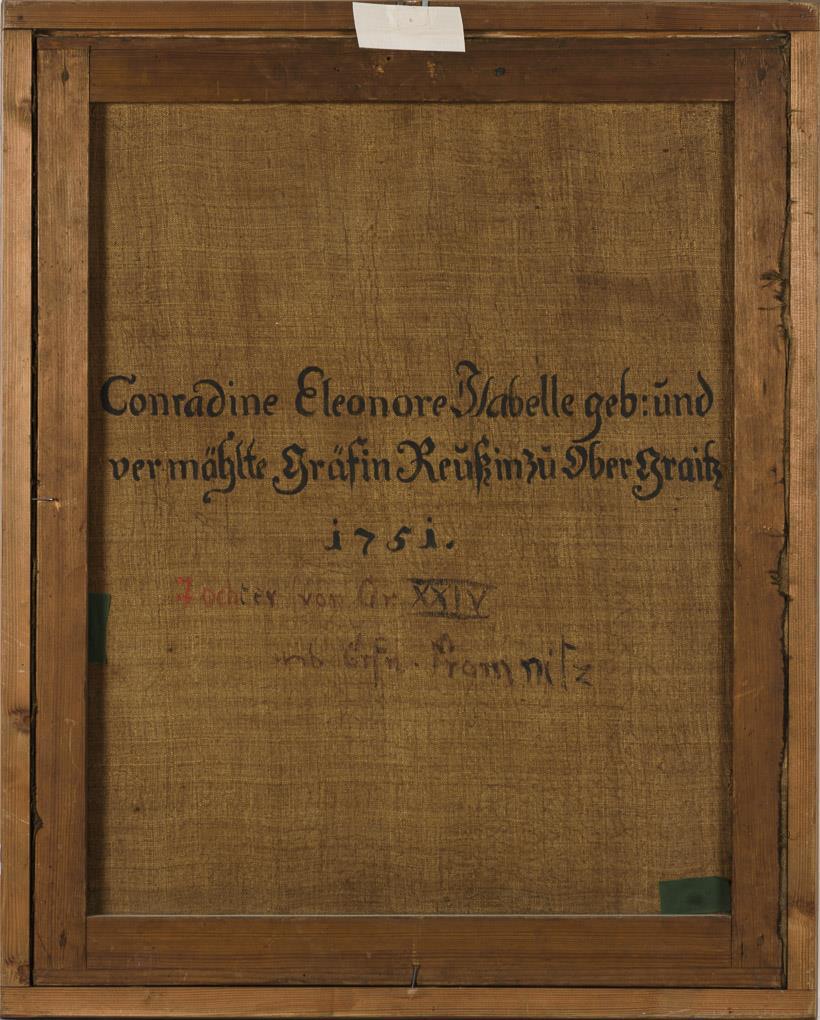 Conradine Eleonore Isabelle geb: und
vermählte Gräfin Reüßin zü Ober Graitz
1751.
Tochter von Gr XXIV
Grfn. Promnitz